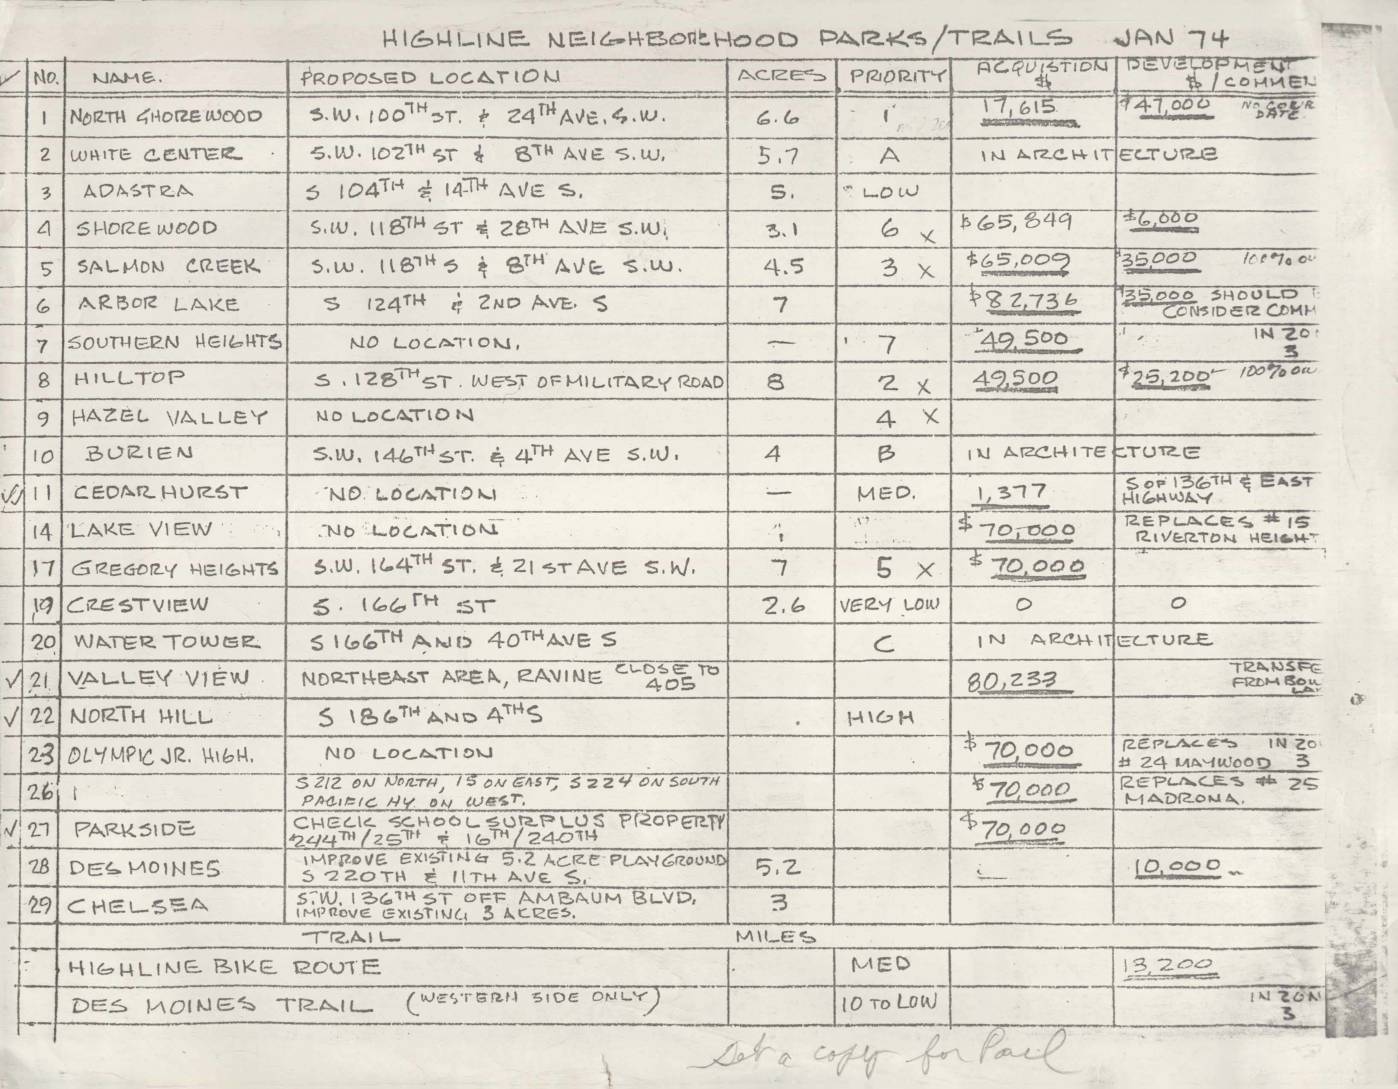 HIGHLINE NEIGHBORHOOD PARKS/TRAILS JAN 74
NO. NAME. PROPOSED LOCATION ACRES PRIORITY ACQUISTION $ DEVELOPMENT $/COMMEN
1 NORTH SHOREWOOD S.W. 100TH ST. & 24TH AVE. S.W. 6.6 1 17,615 $47,000 DATE
2 WHITE CENTER S.W. 102TH ST & 8TH AVE S.W. 5.7 A IN ARCHITECTURE
3 ADASTRA S 104TH & 14TH AVE S. 5. LOW
4 SHOREWOOD S.W. 118TH ST & 28TH AVE S.W. 3.1 6 X $65,849 $6,000
5 SALMON CREEK S.W. 118TH S & 8TH AVE S.W. 4.5 3 X $65,009 $35,000 100% OU
6 ARBOR LAKE S 124TH & 2ND AVE. S 7 $82,736 $35,000 SHOULD
CONSIDER COMM
7 SOUTHERN HEIGHTS NO LOCATION. — 7 49,500 IN ZO
3
8 HILLTOP S. 128TH ST. WEST OF MILITARY ROAD 8 2 X 49,500 $25,200 100% OU
9 HAZEL VALLEY NO LOCATION 4 X
10 BURIEN S.W. 146TH ST. & 4TH AVE S.W. 4 B IN ARCHITECTURE
11 CEDARHURST NO LOCATION — MED. 1,377 S OF 136TH & EAST
HIGHWAY
14 LAKE VIEW NO LOCATION $70,000 REPLACES #15
RIVERTON HEIGHT
17 GREGORY HEIGHTS S.W. 164TH ST. & 21ST AVE S.W. 7 5 X $70,000
19 CRESTVIEW S. 166TH ST 2.6 VERY LOW 0 0
20 WATER TOWER S 166TH AND 40TH AVE S C IN ARCHITECTURE
✓ 21 VALLEY VIEW NORTHEAST AREA, RAVINE CLOSE TO 405 80,233 TRANSFE
FROM BOW
LA
✓ 22 NORTH HILL S 186TH AND 4TH S HIGH
23 OLYMPIC JR. HIGH. NO LOCATION $70,000 REPLACES IN ZO
#24 MAYWOOD 3
26 S 212 ON NORTH, 15 ON EAST, S 224 ON SOUTH $70,000 REPLACES #25
PACIFIC HY ON WEST. MADRONA.
✓ 27 PARKSIDE CHECK SCHOOL SURPLUS PROPERTY $70,000
244TH/25TH & 16TH/240TH
28 DES MOINES IMPROVE EXISTING 5.2 ACRE PLAYGROUND 5.2 — 10,000
S 220TH & 11TH AVE S.
29 CHELSEA S.W. 136TH ST OFF AMBAUM BLVD. 3
IMPROVE EXISTING 3 ACRES.
TRAIL MILES
HIGHLINE BIKE ROUTE MED 13,200
DES MOINES TRAIL (WESTERN SIDE ONLY) 10 TO LOW IN ZON
3
a copy for Paul